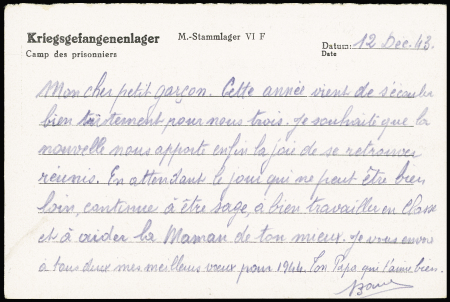 Kriegsgefangenenlager M.-Stammlager VI F
Camp des prisonniers
Datum: 12 Dec. 43.
Date
Mon cher petit garçon. Cette année vient de s'écouler
bien tristement pour nous trois. Je souhaite que la
nouvelle nous apporte enfin la joie de se retrouver
réunis. En attendant le jour qui ne peut être bien
loin, continue à être sage, à bien travailler en classe
et à aider la Maman de ton mieux. Je vous envoie
à tous deux mes meilleurs vœux pour 1944. Ton Papa qui t'aime bien.